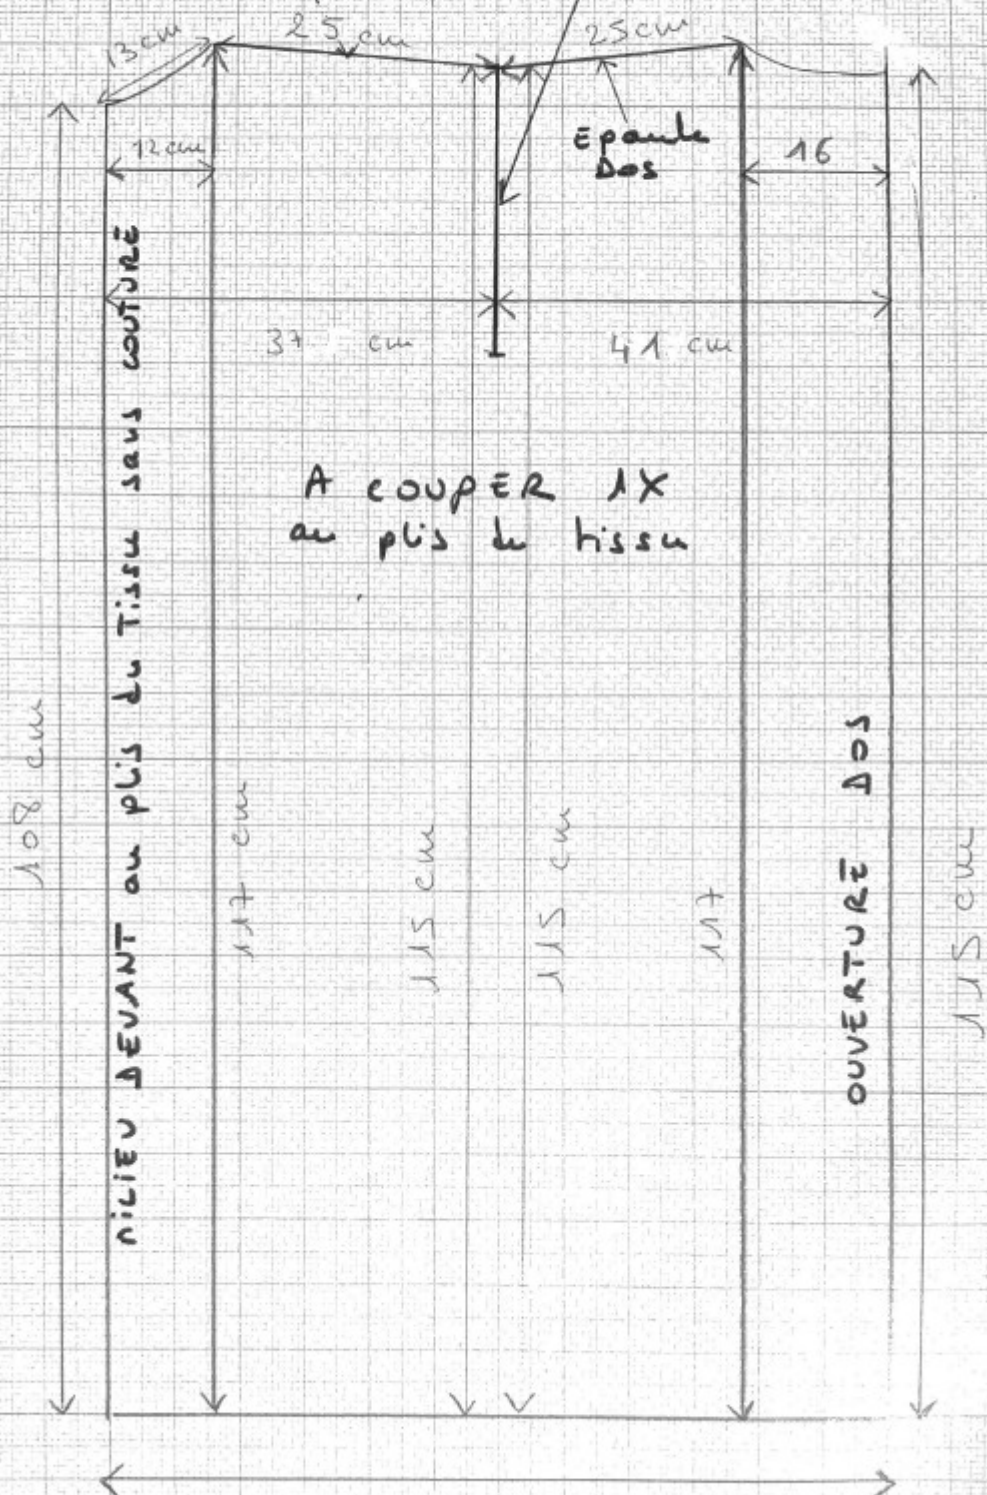 13 cm
25 cm
25 cm
12 cm
Epaule
Dos
16
37 cm
41 cm
A COUPER 1X
au plis du tissu
MILIEU DEVANT au plis du Tissu sans COUTURE
108 cm
117 cm
115 cm
115 cm
117
OUVERTURE DOS
115 cm